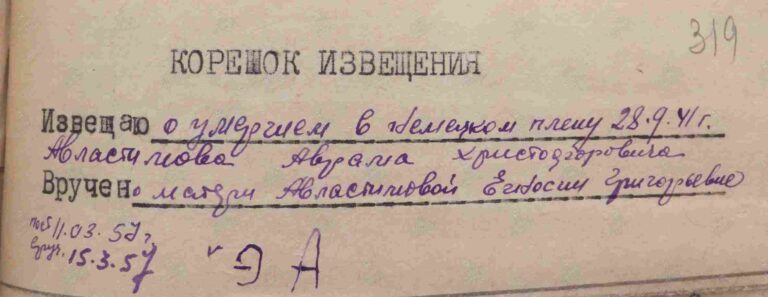 319
КОРЕШОК ИЗВЕЩЕНИЯ
Извещаю о умершем в немецком плену 28.9.41г.
Авластимова Аврама Христофоровича
Вручено матери Авластимовой Григорьевне
11.03.57г.
Вруч. 15.3.57